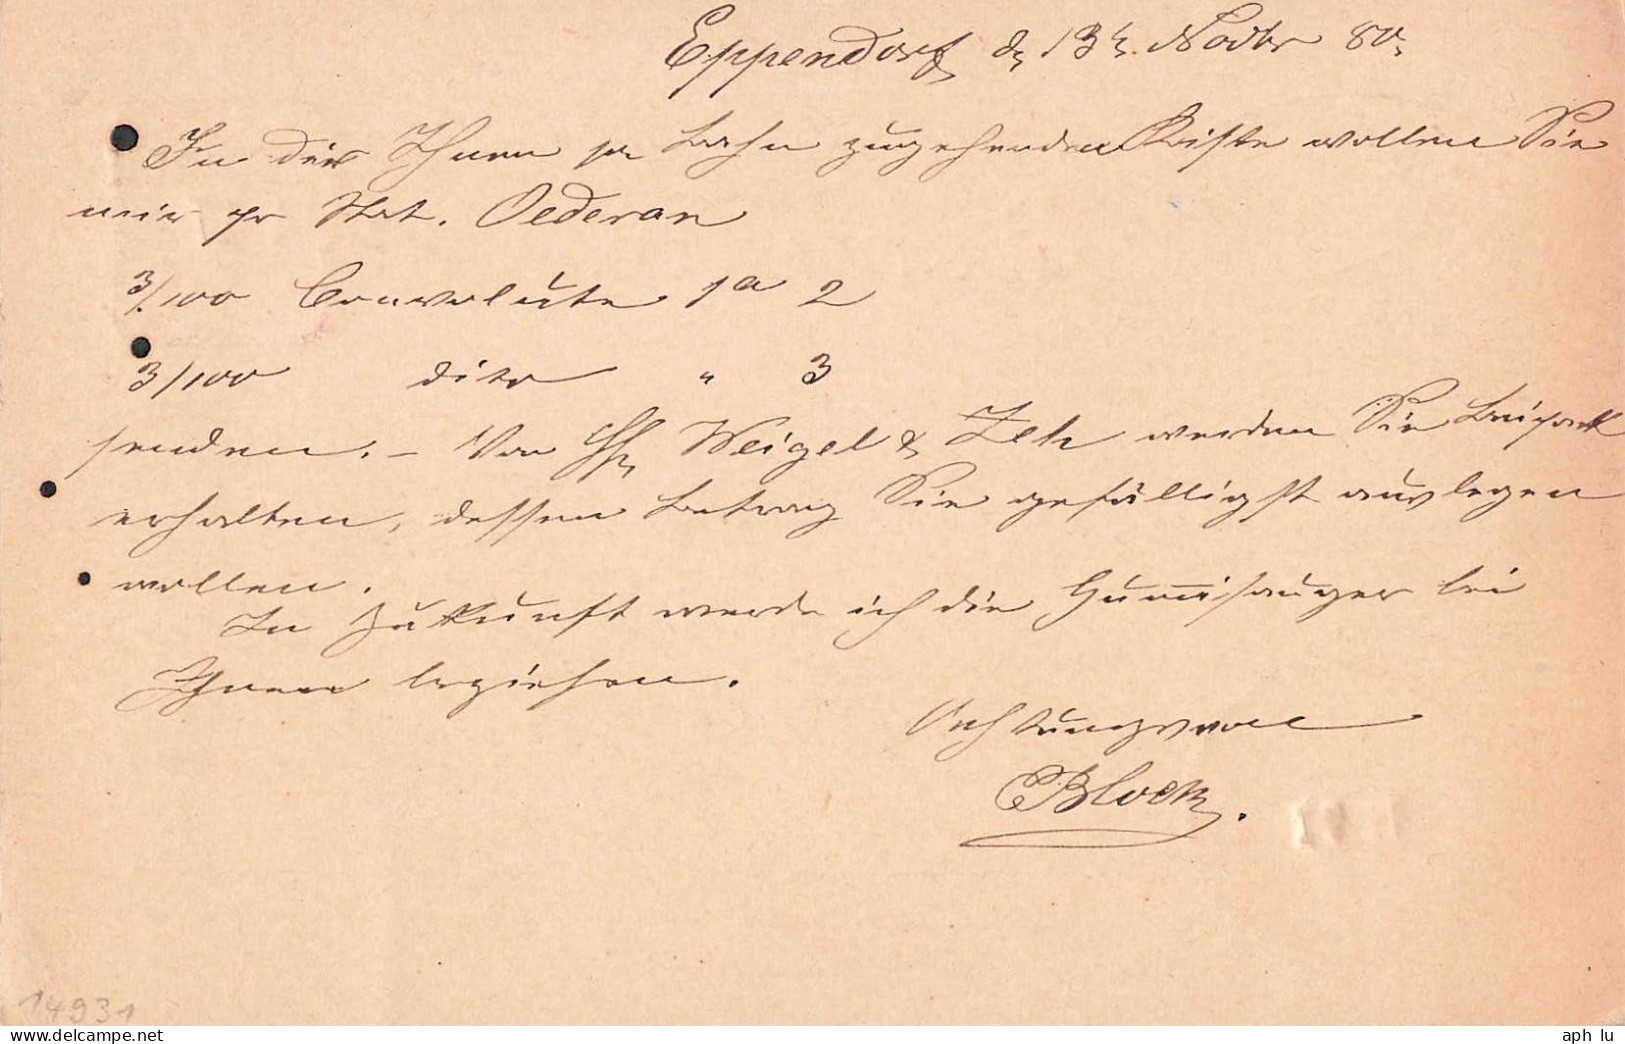 Eppendorf d. 13t. Novbr 80.
In der Ihnen pr Bahn zugehenden Kiste wollen Sie
mir pr Stat. Oederan
3/100 Couverte 1a 2
3/100 dito " 3
senden. – Von HH. Weigel & Zeh werden Sie Beipack
erhalten, dessen Betrag Sie gefälligst auslegen
wollen.
In Zukunft werde ich die Gum̅isauger bei
Ihnen beziehen.
Achtungsvoll
14931
aph lu